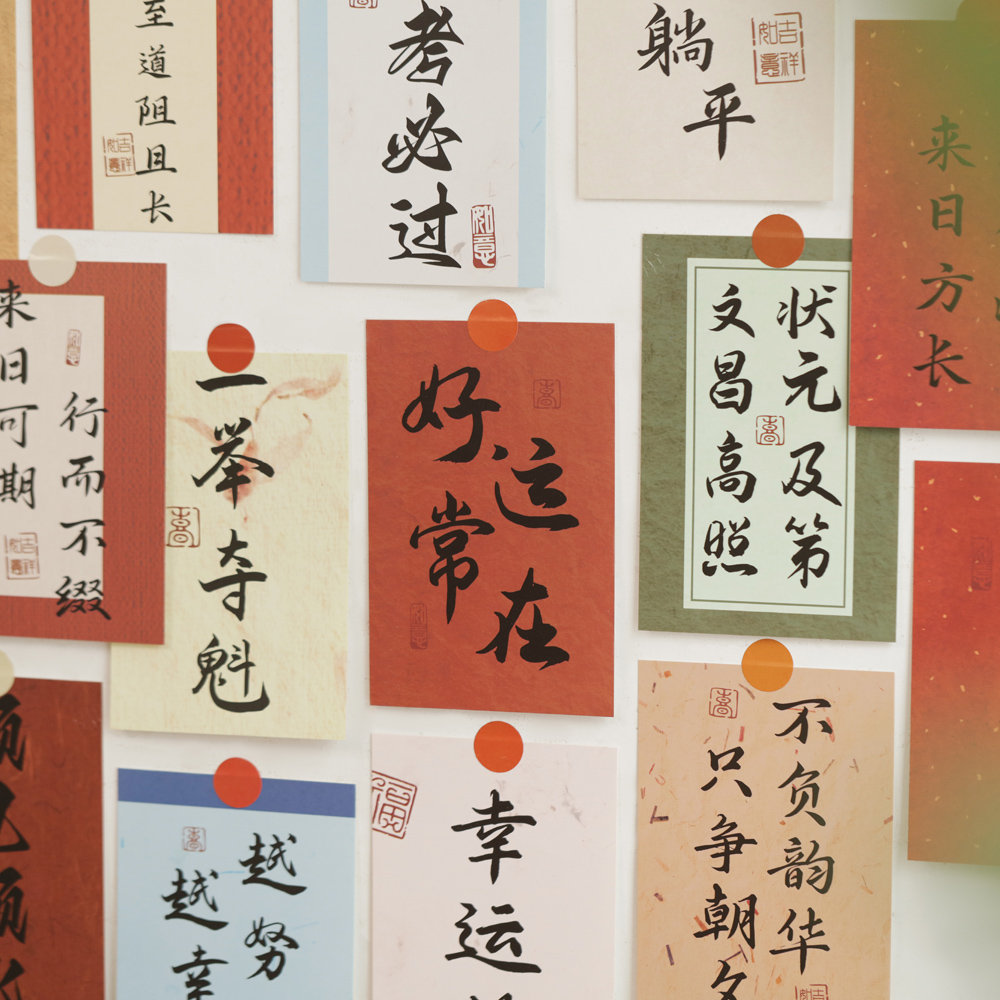 至道阻且长
考必过
如意
躺平
吉祥如意
来日方长
来日可期
行而不缀
一举夺魁
好运
常在
状元及第
文昌高照
越努
越幸
幸运
福
不负韵华
只争朝夕